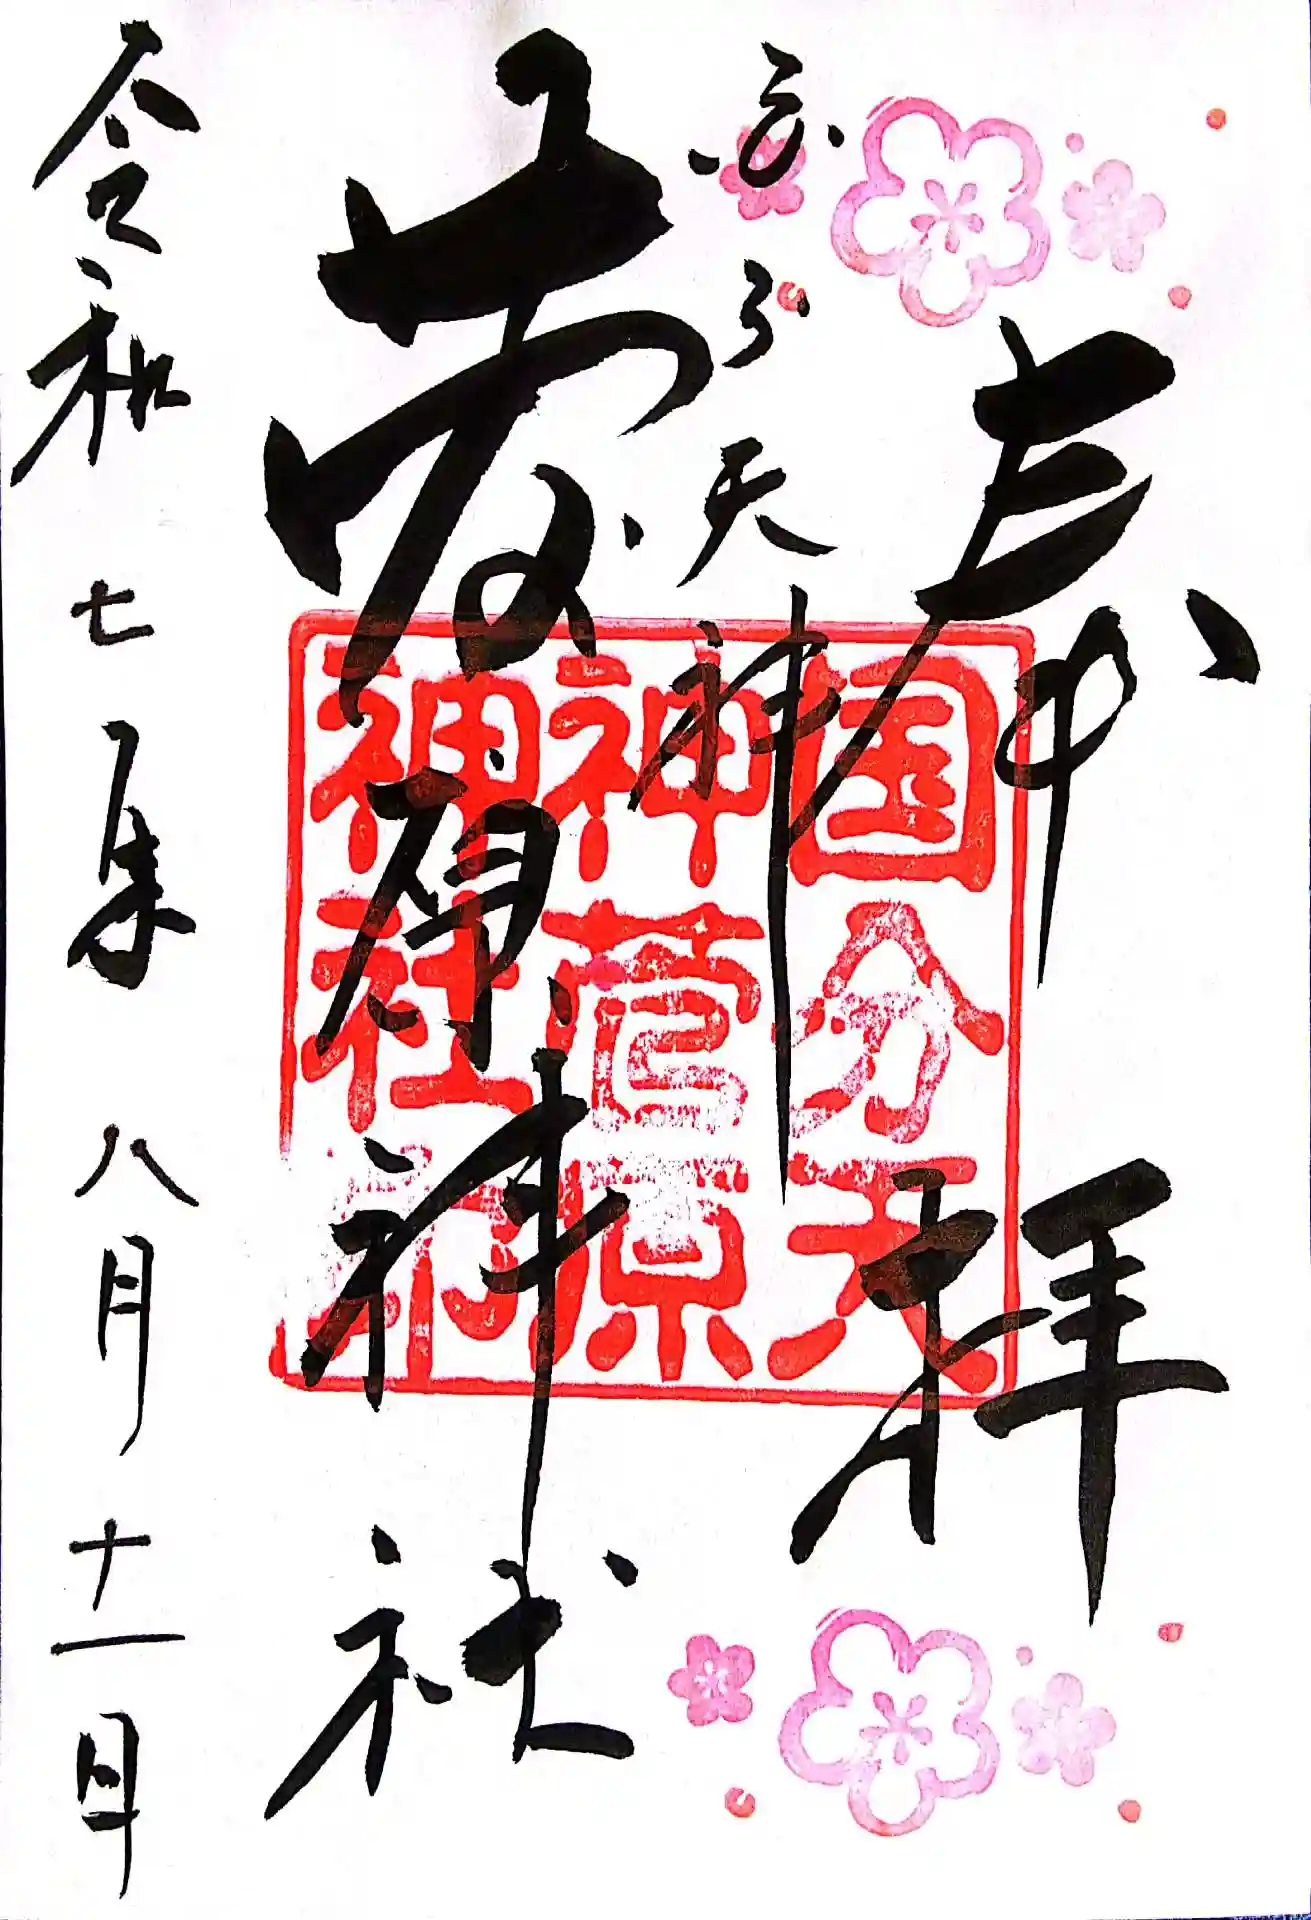 奉拝
こくぶ天神
菅原神社
令和七年八月十一日
国分天
神菅原
神社印